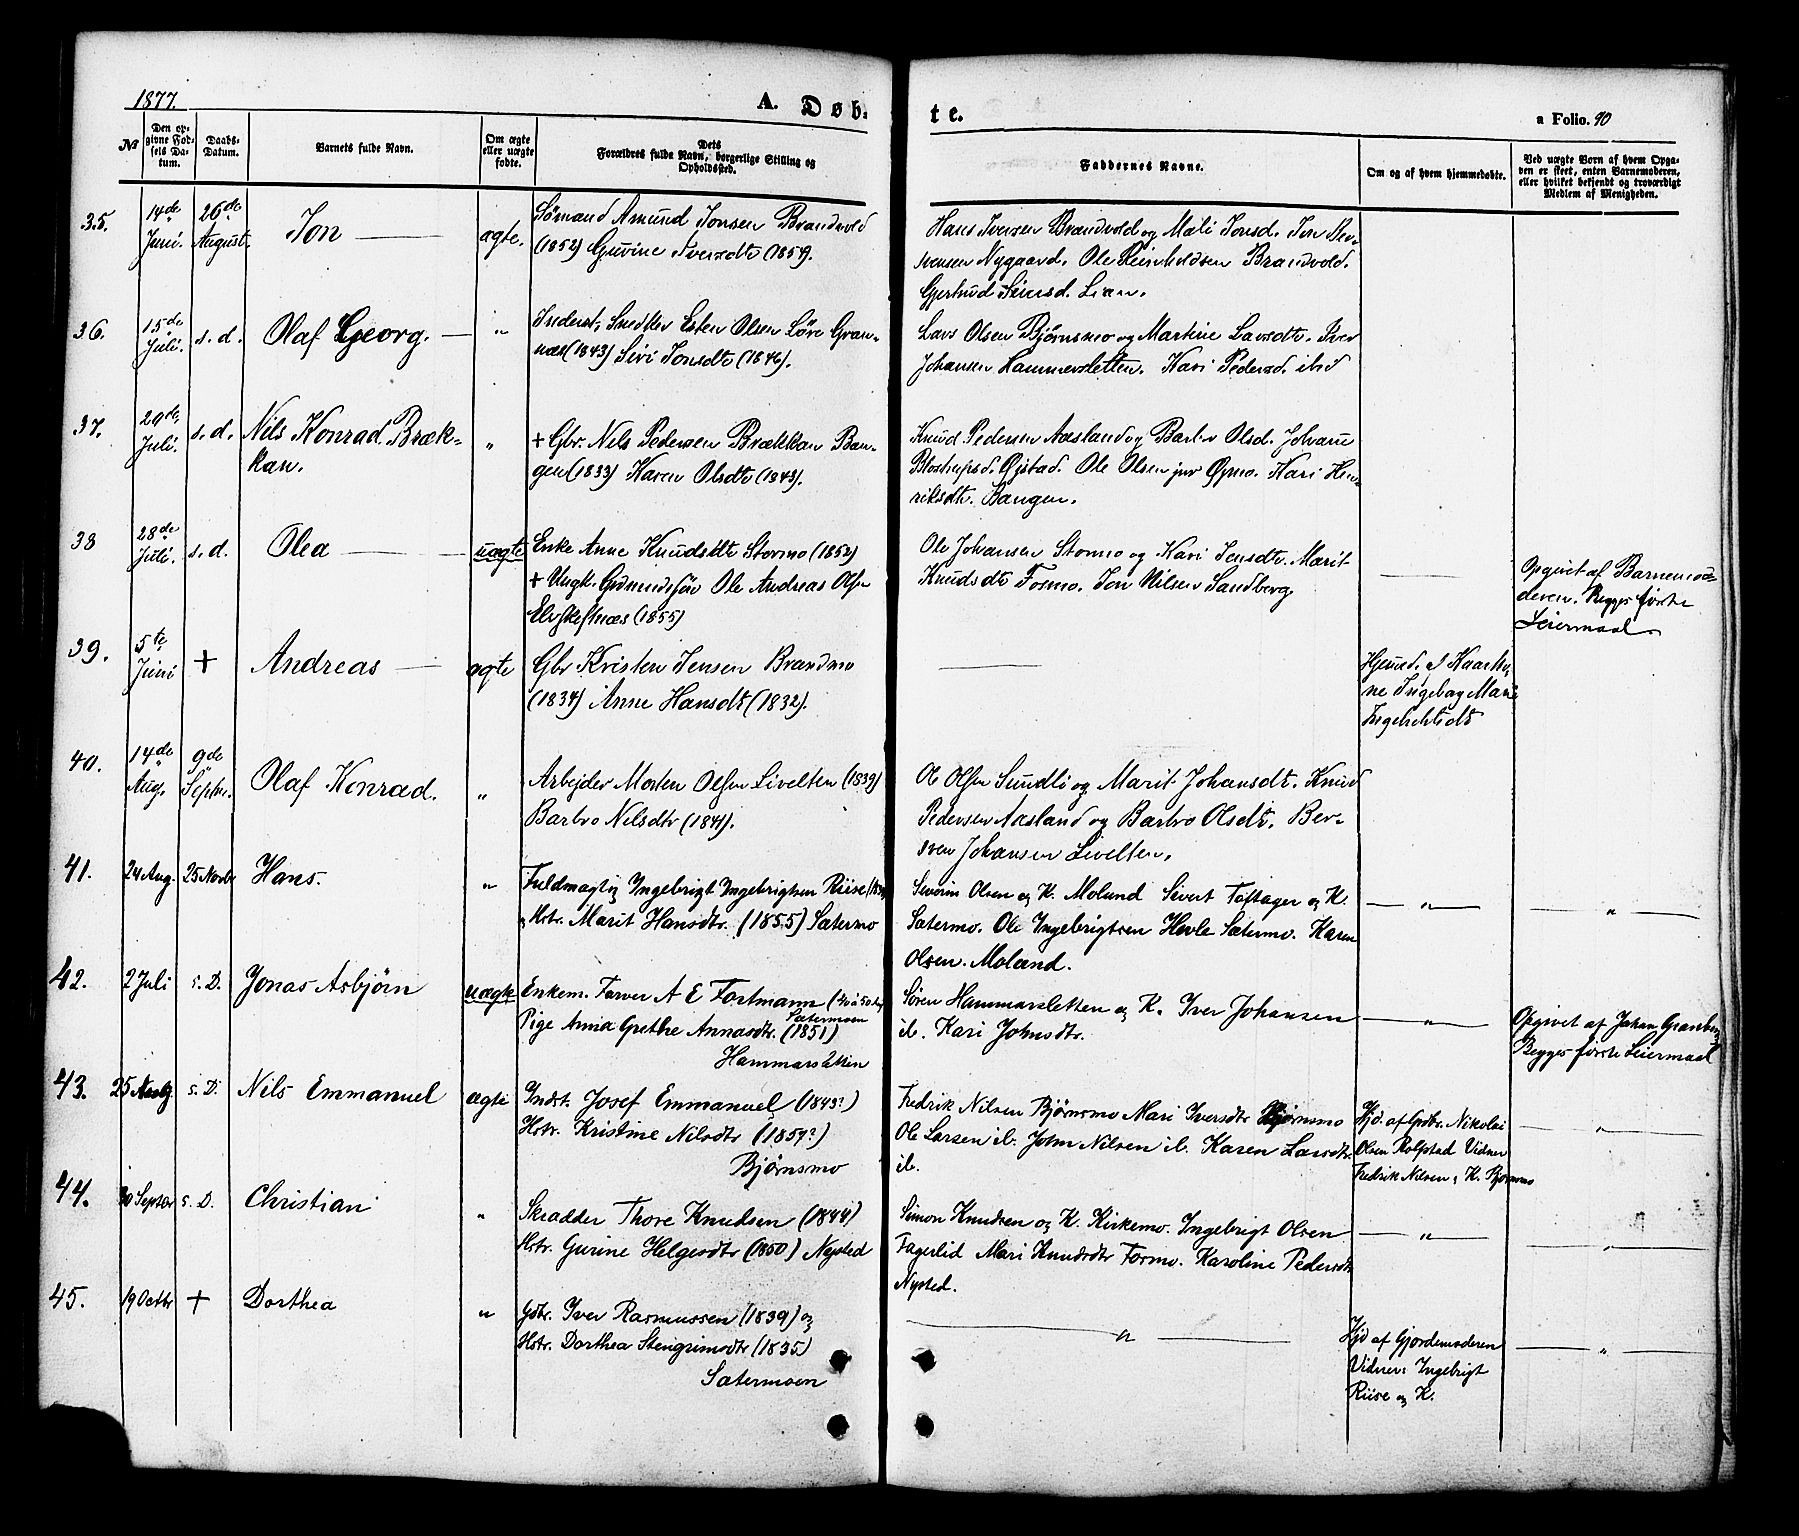 1877.
A. Døb-
te.
a Folio. 90
№
Den op-
givne Fød-
sels Da-
tum.
Daabs-
Datum.
Barnets fulde Navn.
Om ægte
eller uægte
fødte.
Dets
Forældres fulde Navn, borgerlige Stilling og
Opholdssted.
Faddernes Navne.
Om og af hvem hjemmedøbte.
Ved uægte Børn af hvem Opga-
ven er skeet, enten Barnemoderen,
eller hvilket bekjendt og troværdigt
Medlem af Menigheden.
35.
14de
Juni.
26de
August.
Jon
ægte.
Sømand Amund Jonsen Brandvold
(1852) Guvine Iversdtr (1854).
Hans Iversen Brandvold og Mali Jonsd. Jon
Nygaard. Ole Reinholdsen Brandvold.
Gjertrud Lian.
36.
15de
Juli.
s. d.
Olaf Georg.
"
Inderst, Snedker Esten Olsen Løre Gran-
næs (1843) Sivi Jonsdtr (1846).
Lars Olsen Bjørnsmo og Martine Larsdtr. Iver
Johansen Hammersletten. Kari Pedersd. ibid
37.
29de
Juli.
s. d.
Nils Konrad Bræk-
kan.
"
+ Gbr. Nils Pedersen Brækkan Ban-
gen (1833) Karen Olsdtr (1843).
Knud Pedersen Aasland og Barbro Olsd. Johan
Øistad. Ole Olsen jun Øjmo. Kari Hen-
riksdtr. Bangen.
38
28de
Juli.
s. d.
Olea
uægte
Enke Anne Knudsdtr Stormo (1852)
+ Ungk. Ole Andreas Olsen
(1855)
Ole Johansen Stormo og Kari Jensdtr. Marit
Knudsdtr Fosmo. Jon Nilsen Sandberg.
Opgivet af Barnemo-
deren. Begges første
Leiermaal
39.
5te
Juni
+
Andreas
ægte
Gbr Kristen Jensen Brandmo
(1834) Anne Hansdtr (1832).
Ingeborg Mari
Ingebrigtsdtr
40.
14de
Aug.
9de
Septbr.
Olaf Konrad.
"
Arbejder Morten Olsen Livelten (1839)
Barbro Nilsdtr (1841).
Ole Olsen Sundli og Marit Johansdtr. Knud
Pedersen Aasland og Barbro Olsdtr. Ber-
sven Johansen Livelten.
41.
24 Aug.
25 Novbr
Hans.
"
Fuldmægtig Ingebrigt Ingebrigtsen Riise
Hstr. Marit Hansdtr. (1855) Sætermo
Severin Olsen og K. Moland Sivert Toftager og K.
Sætermo. Ole Ingebrigtsen Hovle Sætermo. Karen
Olsen. Moland.
"
"
42.
2 Juli
s. D.
Jonas Asbjørn
uægte
Enkem. Farver A E Fortmann (40 à 50 Aar)
Sætermoen
Pige Anna Grethe Annasdtr. (1851)
Hammarsletten
Søren Hammarsletten og K. Iver Johansen
ib. Kari Johnsdtr.
"
Opgivet af Johan Granberg
Begges første Leiermaal
43.
25
s. D.
Nils Emmanuel
ægte
Indst. Josef Emmanuel (1843?)
Hstr. Kristine Nilsdtr (1859?)
Bjørnsmo
Fredrik Nilsen Bjørnsmo Mari Iversdtr Bjørnsmo
Ole Larsen ib. John Nilsen ib. Karen Larsdtr.
ib.
Hjd. af Gdbr. Nikolai
Olsen Rolfstad Vidner
Fredrik Nilsen & K. Bjørnsmo
"
44.
30 Septbr
s. D.
Christian
"
Skrædder Thore Knudsen (1844)
Hstr. Gurine Helgesdtr (1850) Nysted
Simon Knudsen og K. Kirkemo. Ingebrigt Olsen
Fagerlid Mari Knudsdtr Formo. Karoline Pedersdtr
Nysted.
"
"
45.
19 Octbr
+
Dorthea
"
Gdbr. Iver Rasmussen (1839) og
Hstr. Dorthea Stengrimsdtr (1835)
Sætermoen
"
Hjd af Gjordemoderen
Vidner: Ingebrigt
Riise og K.
"